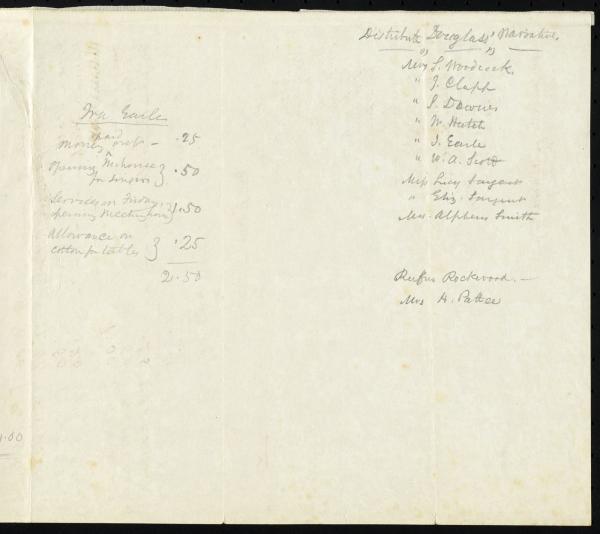 Ira Earle
paid
money out – .25
opening Mehouse } .50
for singers }
Services on Friday, } 1.50
opening Meetinghouse }
Allowance on } .25
cotton for tables }
2.50
1.00
Distribute Douglass' Narrative.
Mrs S. Woodcock.
" J. Clapp
" S. Downes
" W. Hatch
" I. Earle
" W. A. Scott
Miss Lucy Sargent
" Eliz. Sargent
Mrs. Alpheus Smith
Rufus Rockwood. –
Mrs H.